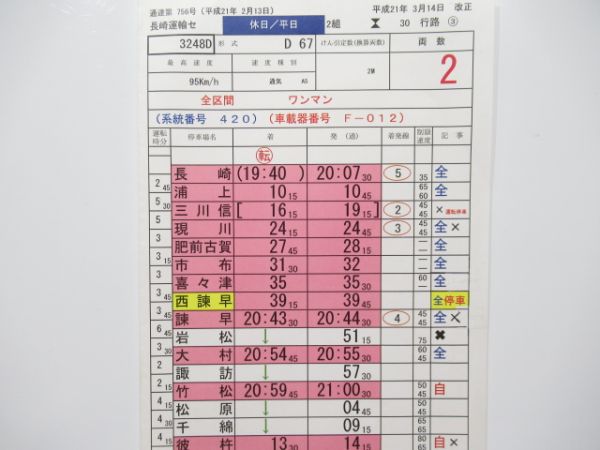 通達第 756号（平成21年 2月13日）
平成21年 3月14日 改正
長崎運輸セ 休日／平日 2組 30 行路 ③
3248D 形式 D 67 けん引定数(換算両数) 両数
最高速度 速度種別 2M 2
95Km/h 通気 A5
全区間 ワンマン
（系統番号 420）（車載器番号 F－012）
運転時分 停車場名 着 発（通） 着発線 制限速度 記事
転
長崎 (19:40 ) 20:07 30 5 35 全
2 45 浦上 10 15 10 45 65 60 全
5 30 三川信 [ 16 15 19 15 ] 2 45 45 ×運転停車
5 現川 24 15 24 45 3 45 45 全×
3 肥前古賀 27 45 28 15 — — 全
3 15 市布 31 30 32 — — 全
3 喜々津 35 35 30 60 — 全
3 45 西諫早 39 15 39 45 全停車
3 45 諫早 20:43 30 20:44 30 4 45 45 全×
6 45 岩松 ↓ 51 15 75 ✖
3 30 大村 20:54 45 20:55 30 60 45 全
2 諏訪 ↓ 57 30
2 15 竹松 20:59 45 21:00 30 50 45 自
4 15 松原 ↓ 04 45 50 45
4 30 千綿 ↓ 09 15 65 65
4 15 彼杵 13 30 14 15 80 65 自×